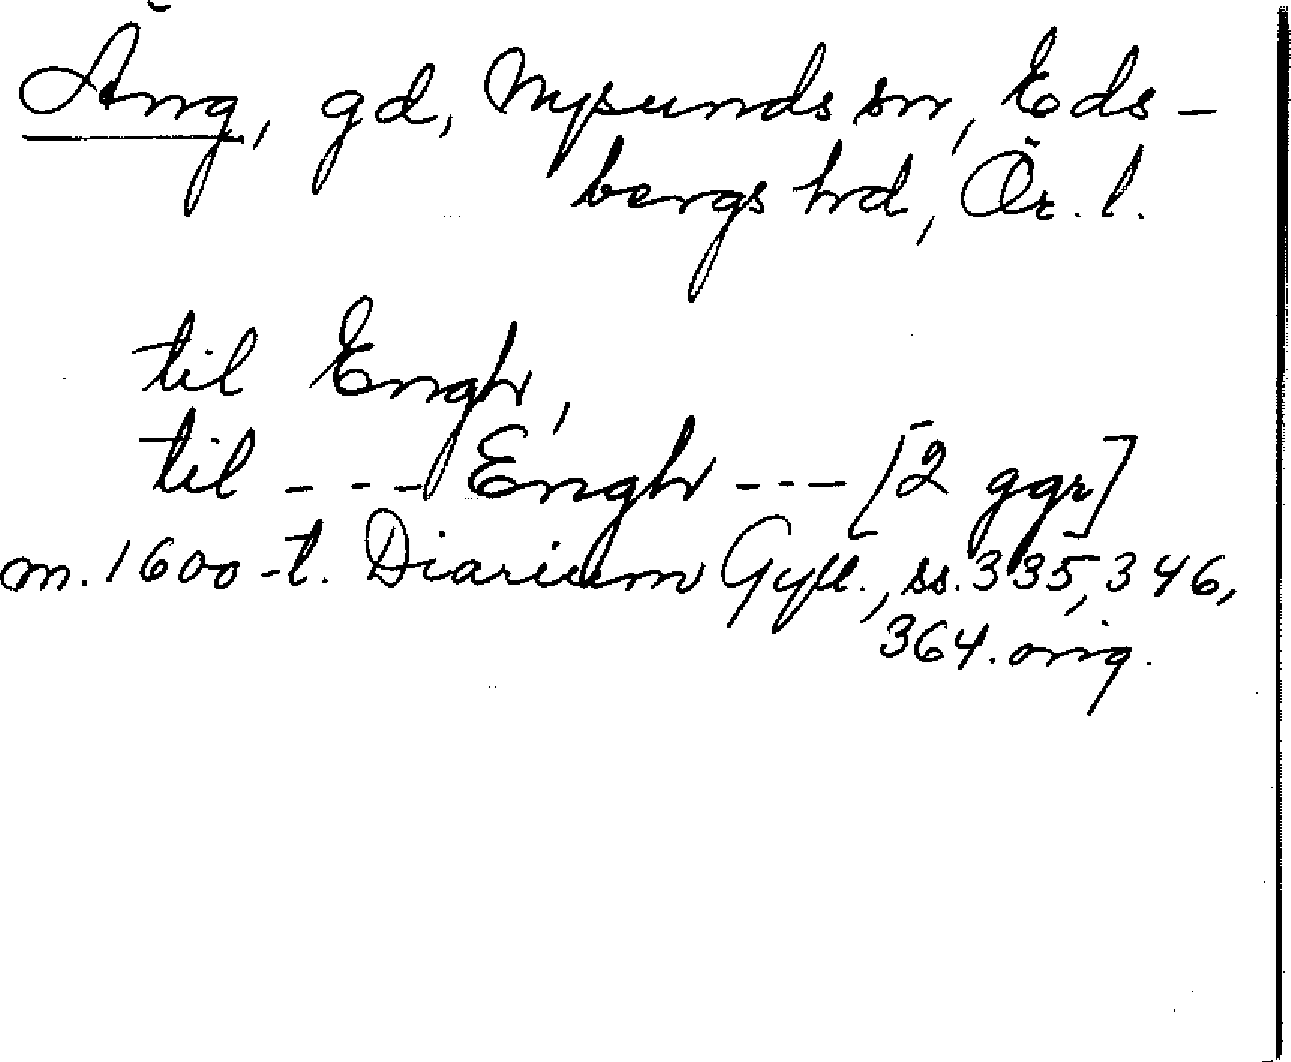 Äng, gd, Nysunds sn, Eds-
bergs hrd, Ör. l.
til Engh,
til --- Engh --- [2 ggr]
m. 1600-t. Diarium Gyll., ss. 335, 346,
364. orig.